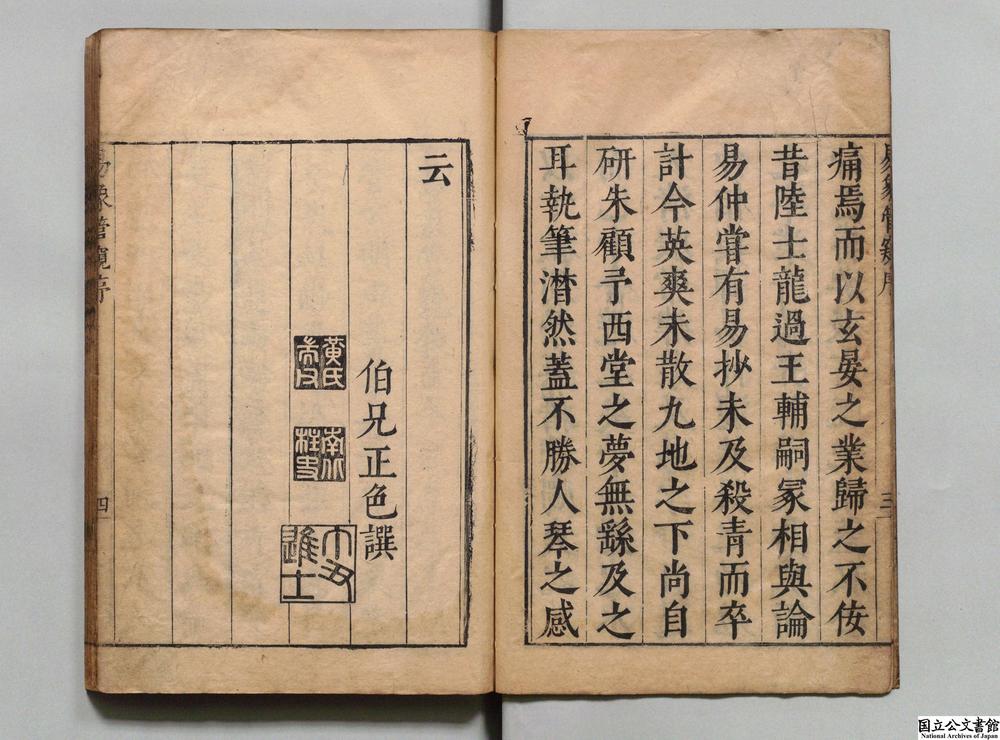 易象管窺序
三
痛焉而以玄晏之業歸之不佞
昔陸士龍過王輔嗣冢相與論
易仲嘗有易抄未及殺青而卒
計今英爽未散九地之下尚自
研朱顧予西堂之夢無繇及之
耳執筆潸然蓋不勝人琴之感
云
伯兄正色譔
黃氏
南
柱史
丁丑
進士
易象管窺序
四
国立公文書館
National Archives of Japan